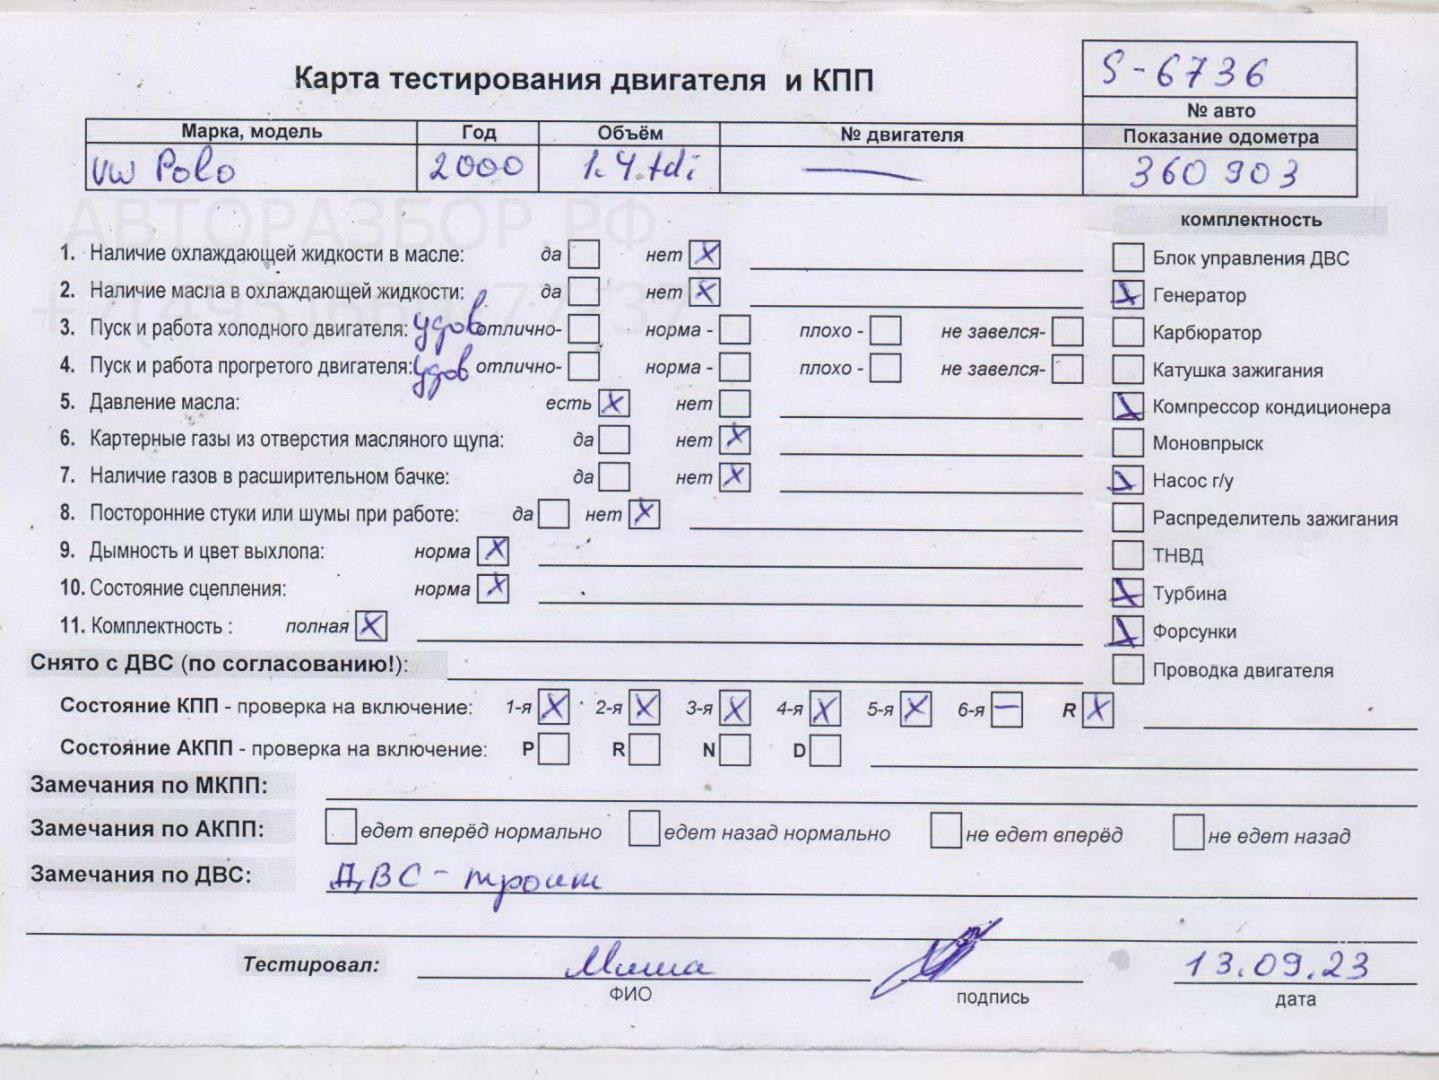 S-6736
Карта тестирования двигателя и КПП
№ авто
Марка, модель Год Объём № двигателя Показание одометра
VW Polo 2000 1.4.tdi — 360 903
АВТОРАЗБОР.РФ
комплектность
1. Наличие охлаждающей жидкости в масле: да нет X Блок управления ДВС
2. Наличие масла в охлаждающей жидкости: да нет X X Генератор
3. Пуск и работа холодного двигателя: удов отлично- норма - плохо - не завелся- Карбюратор
4. Пуск и работа прогретого двигателя: удов отлично- норма - плохо - не завелся- Катушка зажигания
5. Давление масла: есть X нет X Компрессор кондиционера
6. Картерные газы из отверстия масляного щупа: да нет X Моновпрыск
7. Наличие газов в расширительном бачке: да нет X X Насос г/у
8. Посторонние стуки или шумы при работе: да нет X Распределитель зажигания
9. Дымность и цвет выхлопа: норма X ТНВД
10. Состояние сцепления: норма X X Турбина
11. Комплектность : полная X X Форсунки
Снято с ДВС (по согласованию!): Проводка двигателя
Состояние КПП - проверка на включение: 1-я X 2-я X 3-я X 4-я X 5-я X 6-я — R X
Состояние АКПП - проверка на включение: P R N D
Замечания по МКПП:
Замечания по АКПП: едет вперёд нормально едет назад нормально не едет вперёд не едет назад
Замечания по ДВС: ДВС - троит
Тестировал: Миша 13.09.23
ФИО подпись дата